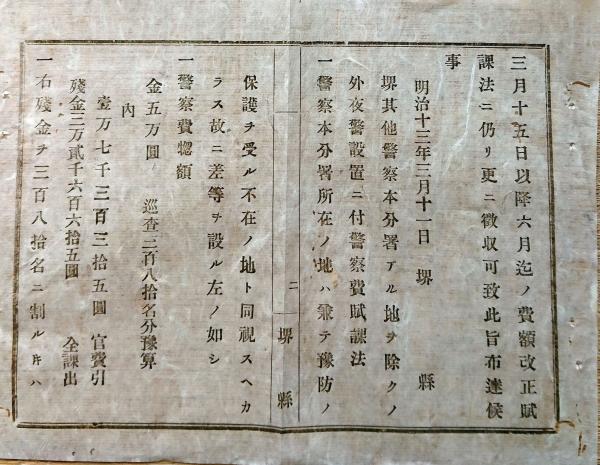 三月十五日以降六月迄ノ費額改正賦
課法ニ仍リ更ニ徴収可致此旨布達候
事
明治十三年三月十一日 堺縣
堺其他警察本分署アル地ヲ除クノ
外夜警設置ニ付警察費賦課法
一警察本分署所在ノ地ハ兼テ豫防ノ
二 堺縣
保護ヲ受ル不在ノ地ト同視スヘカ
ラス故ニ差等ヲ設ル左ノ如シ
一警察費惣額
金五万圓 巡査三百八拾名分豫算
內
壹万七千三百三拾五圓 官費引
殘金三万貳千六百六拾五圓 全課出
一右殘金ヲ三百八拾名ニ割ル𪜈ハ